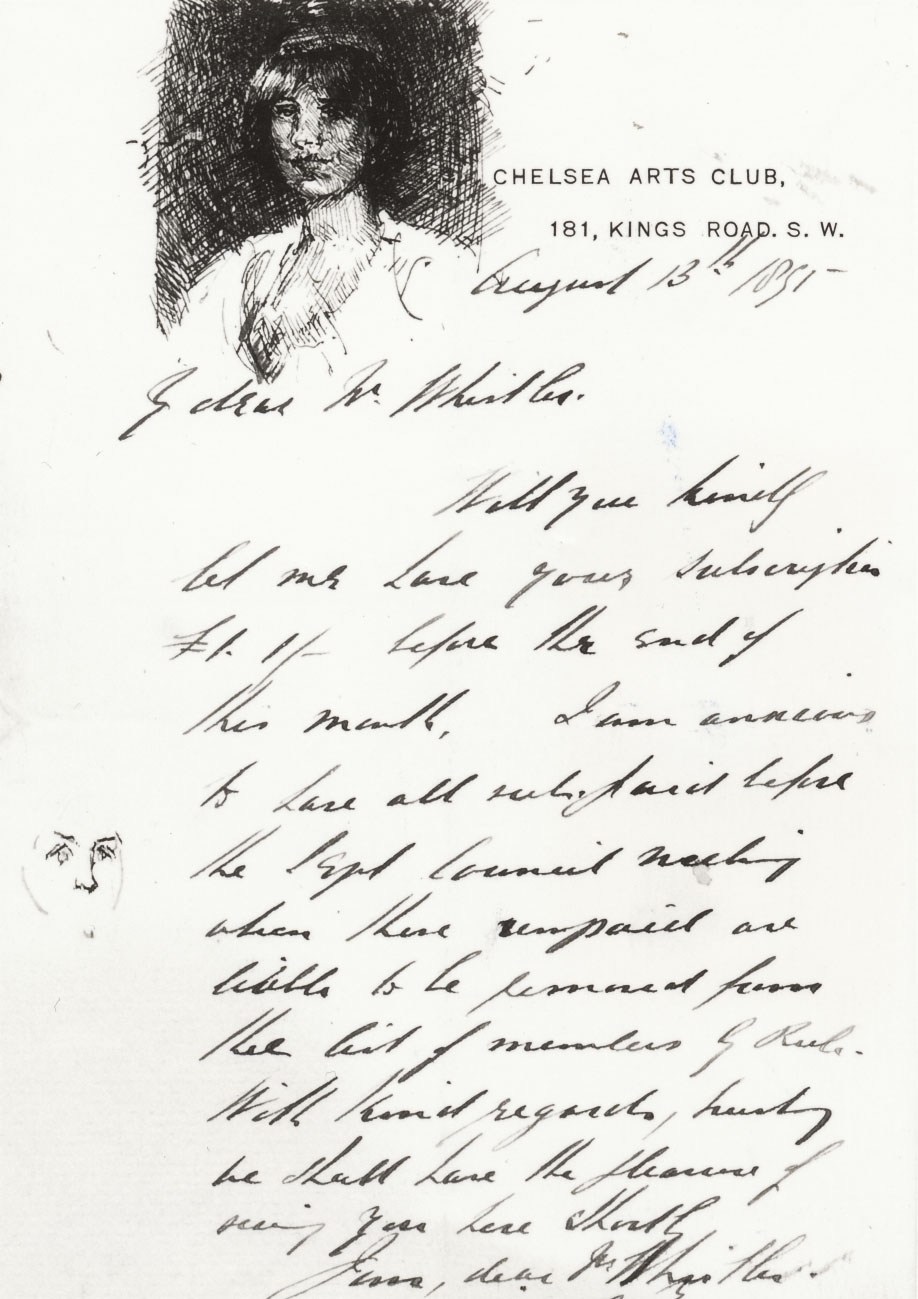 CHELSEA ARTS CLUB,
181, KINGS ROAD. S. W.
August 13th 1895
My dear Mr. Whistler.
Will you kindly
let me have your subscription
£1. 1/- before the end of
this month. I am anxious
to have all subs. paid before
the Sept Council meeting
when those unpaid are
liable to be removed from
the list of members by Rule.
With kind regards, trusting
we shall have the pleasure of
seeing you here shortly
Yours, dear Mr Whistler.